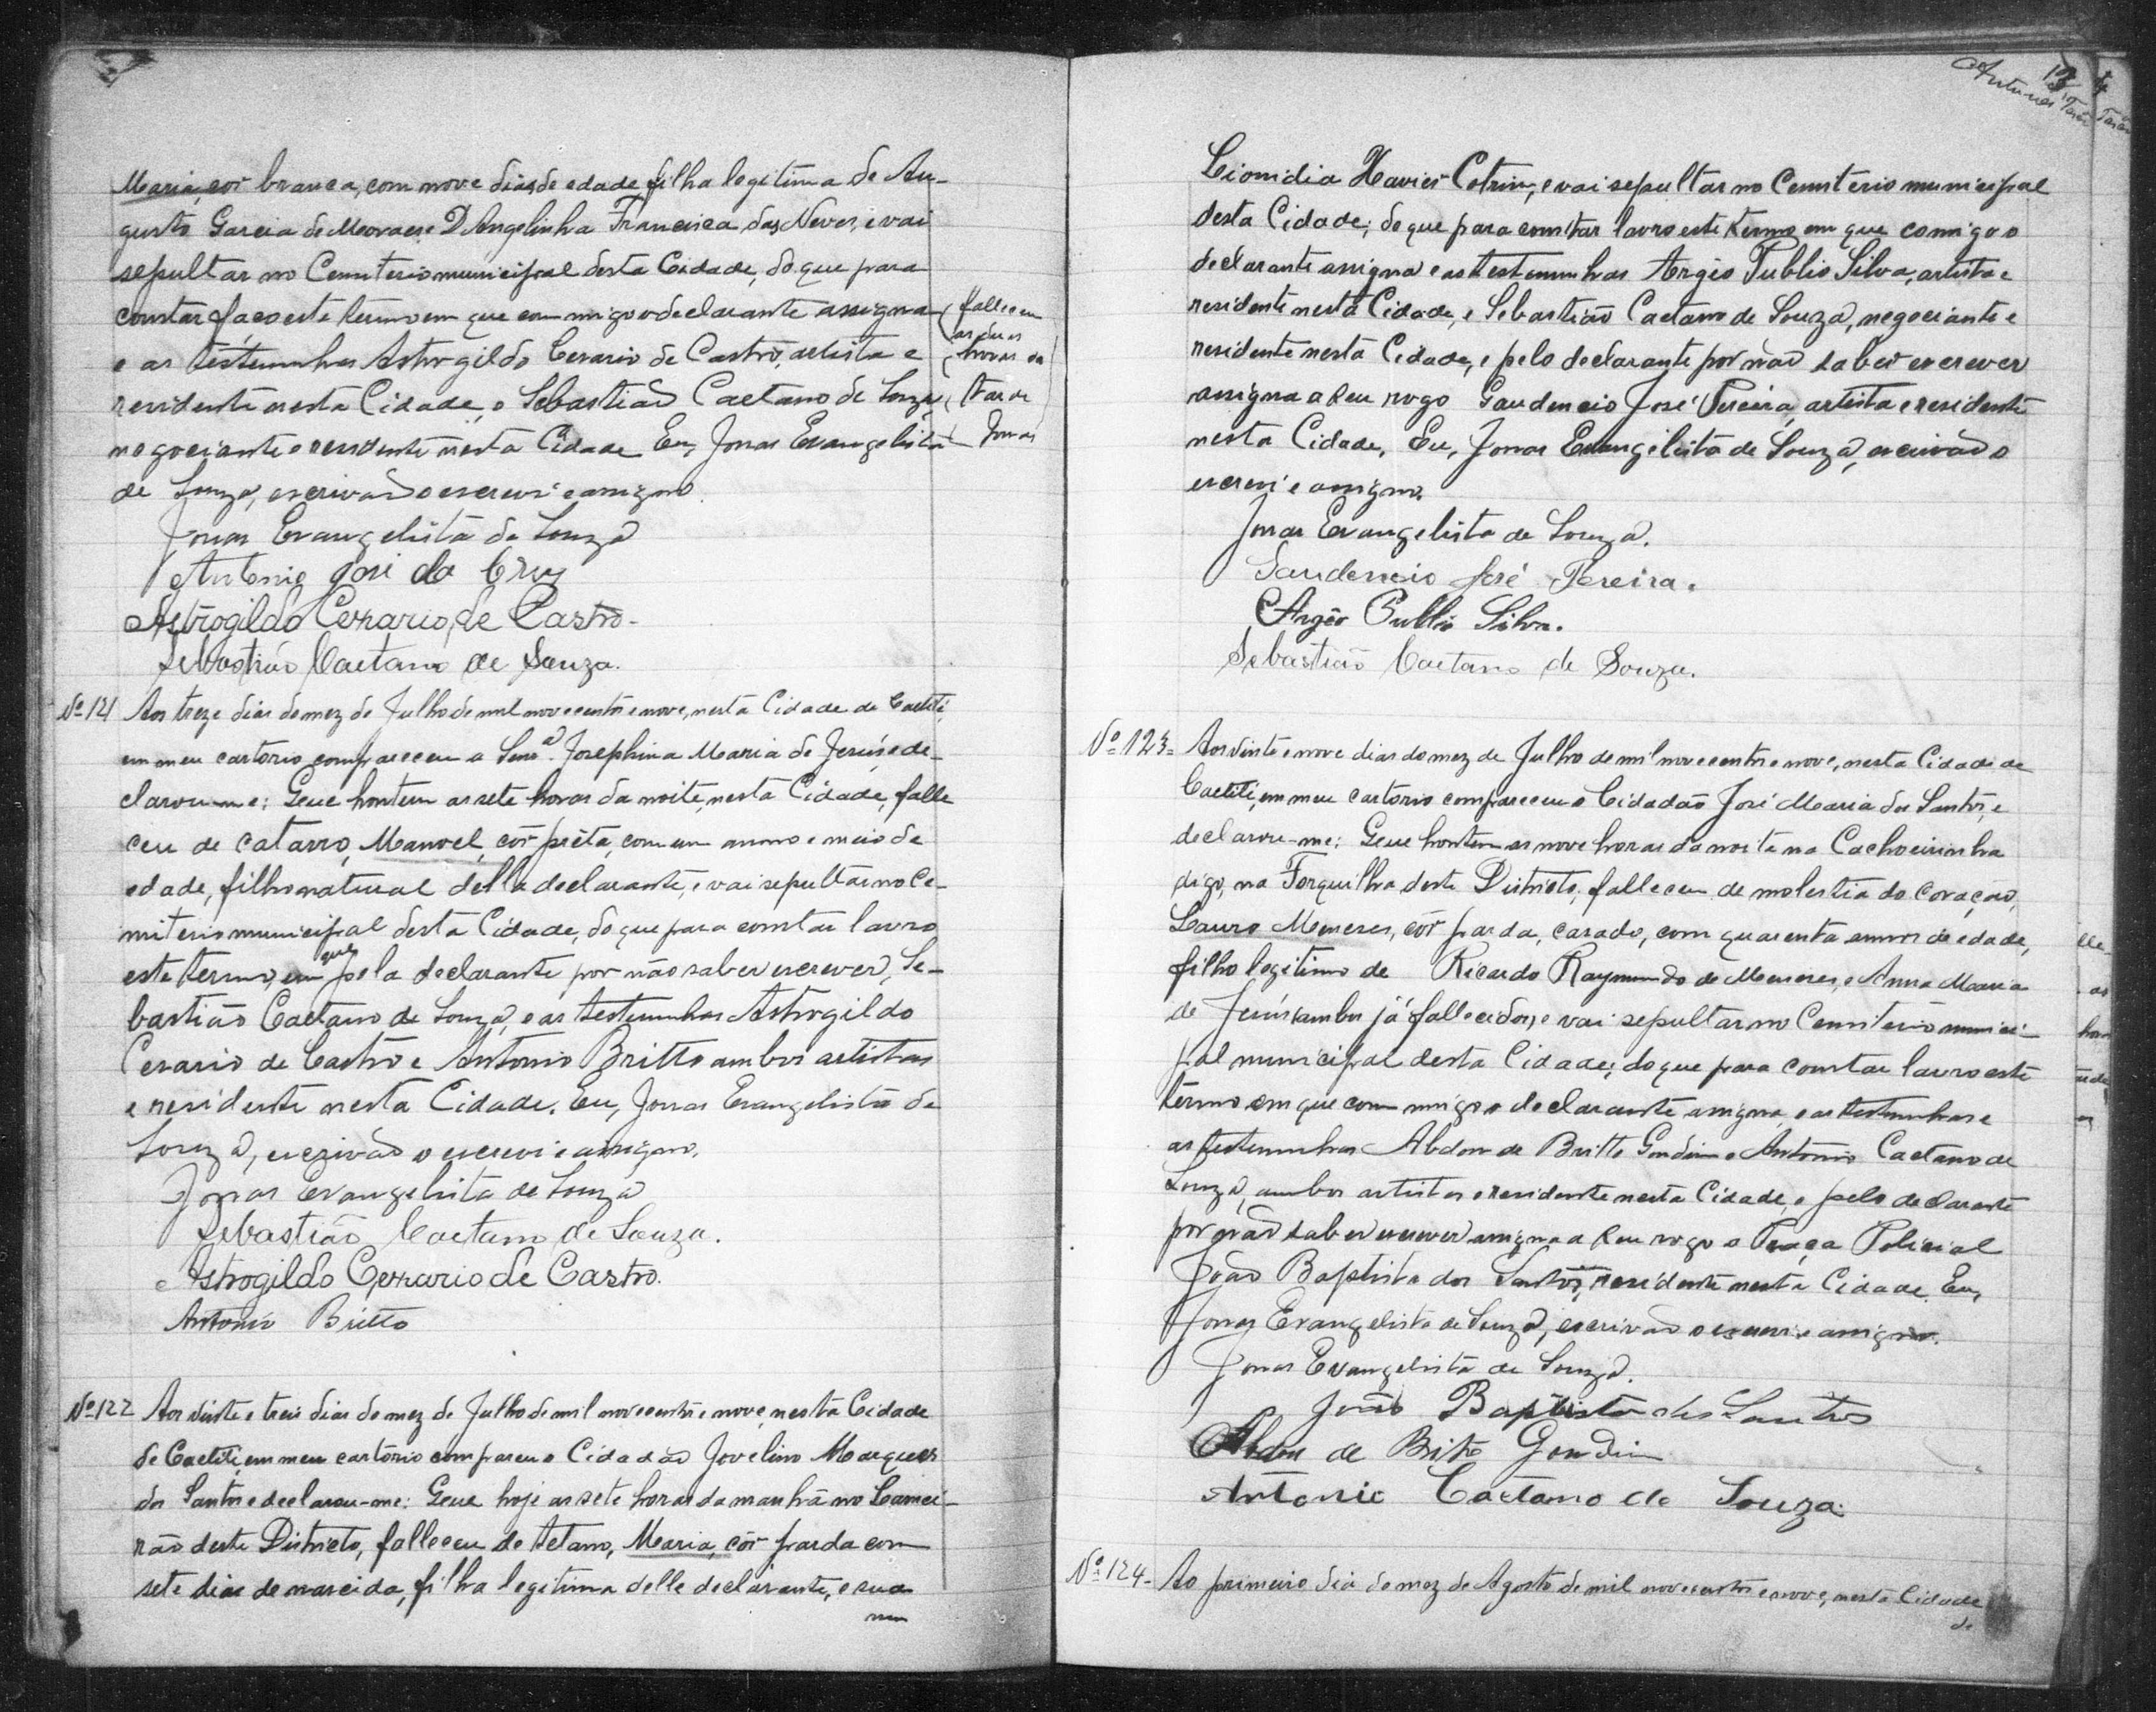 Maria, côr branca, com nove dias de edade, filha legitima de Au-
gusto Garcia de Moraes e D. Angelinha Francisca das Neves, e vai
sepultar no Cemiterio municipal desta Cidade, do que para
constar faço este termo em que commigo o declarante assigna
e as testemunhas Astrogildo Cesario de Castro, artista e
residente nesta Cidade, e Sebastião Caetano de Souza,
negociante e residente nesta Cidade. Eu, Jonas Evangelista
de Souza, escrivão o escrevi e assigno.
falleceu
as duas
horas da
tarde
Jonas
Jonas Evangelista de Souza
Antonio José da Cruz
Astrogildo Cezario de Castro.
Sebastião Caetano de Souza.
Nº 121 Aos treze dias do mez de Julho de mil novecentos e nove, nesta Cidade de Caetité,
em meu cartorio compareceu a Senrª. Josephina Maria de Jesús e de-
clarou-me: Que hontem as sete horas da noite, nesta Cidade, falle
ceu de catarro, Manoel, côr preta, com um anno e meio de
edade, filho natural della declarante, e vai sepultar no Ce-
miterio municipal desta Cidade, do que para constar lavro
este termo, em que pela declarante por não saber escrever, Se-
bastião Caetano de Souza, e as testemunhas Astrogildo
Cesario de Castro e Antonio Britto ambos artistas
e residente nesta Cidade. Eu, Jonas Evangelista de
Souza, escrivão o escrevi e assigno.
Jonas Evangelista de Souza
Sebastião Caetano de Souza.
Astrogildo Cezario de Castro.
Antonio Britto
Nº 122 Aos vinte e treis dias do mez de Julho de mil novecentos e nove, nesta Cidade
de Caetité, em meu cartorio compareu o Cidadão Jovelino Marques
dos Santos e declarou-me: Que hoje as sete horas da manhã no Lamei-
rão deste Districto, falleceu de tetano, Maria, côr parda com
sete dias de nascida, filha legitima delle declarante, e sua
m
13
Antunes
Leonidia Xavier Cotrim, e vai sepultar no Cemiterio municipal
desta Cidade; do que para constar lavro este termo em que comigo o
declarante assigna e as testemunhas Argêo Publio Silva, artista e
residente nesta Cidade, e Sebastião Caetano de Souza, negociante e
residente nesta Cidade, e pelo declarante por não saber escrever
assigna a seu rogo Gaudencio José Pereira, artista e residente
nesta Cidade. Eu, Jonas Evangelista de Souza, escrivão o
escrevi e assigno.
Jonas Evangelista de Souza.
Gaudencio José Pereira.
Argêo Publio Silva.
Sebastião Caetano de Souza.
Nº 123= Aos vinte e nove dias do mez de Julho de mil novecentos e nove, nesta Cidade de
Caetité, em meu cartorio compareceu o Cidadão José Maria dos Santos, e
declarou-me: Que hontem as nove horas da noite na Cachoeirinha
digo, na Forquilha deste Districto, falleceu de molestia do coração,
Lauro Meneses, côr parda, casado, com quarenta annos de edade,
filho legitimo de Ricardo Raymundo de Meneses, e Anna Maria
de Jesús, ambos já fallecidos, e vai sepultar no Cemiterio munici-
pal municipal desta Cidade; do que para constar lavro este
termo em que commigo o declarante assigna, e as testemunhas e
as testemunhas Abdon de Britto Gondim e Antonio Caetano de
Souza, ambos artistas e residente nesta Cidade, e pelo declarante
por não saber escrever assigna a seu rogo o Praça Policial
João Baptista dos Santos, residente nesta Cidade. Eu,
Jonas Evangelista de Souza, escrivão o escrevi e assigno.
Jonas Evangelista de Souza.
João Baptista dos Santos
Abdon de Brito Gondim
Antonio Caetano de Souza.
Nº 124- Ao primeiro dia do mez de Agosto de mil novecentos e nove, nesta Cidade
de